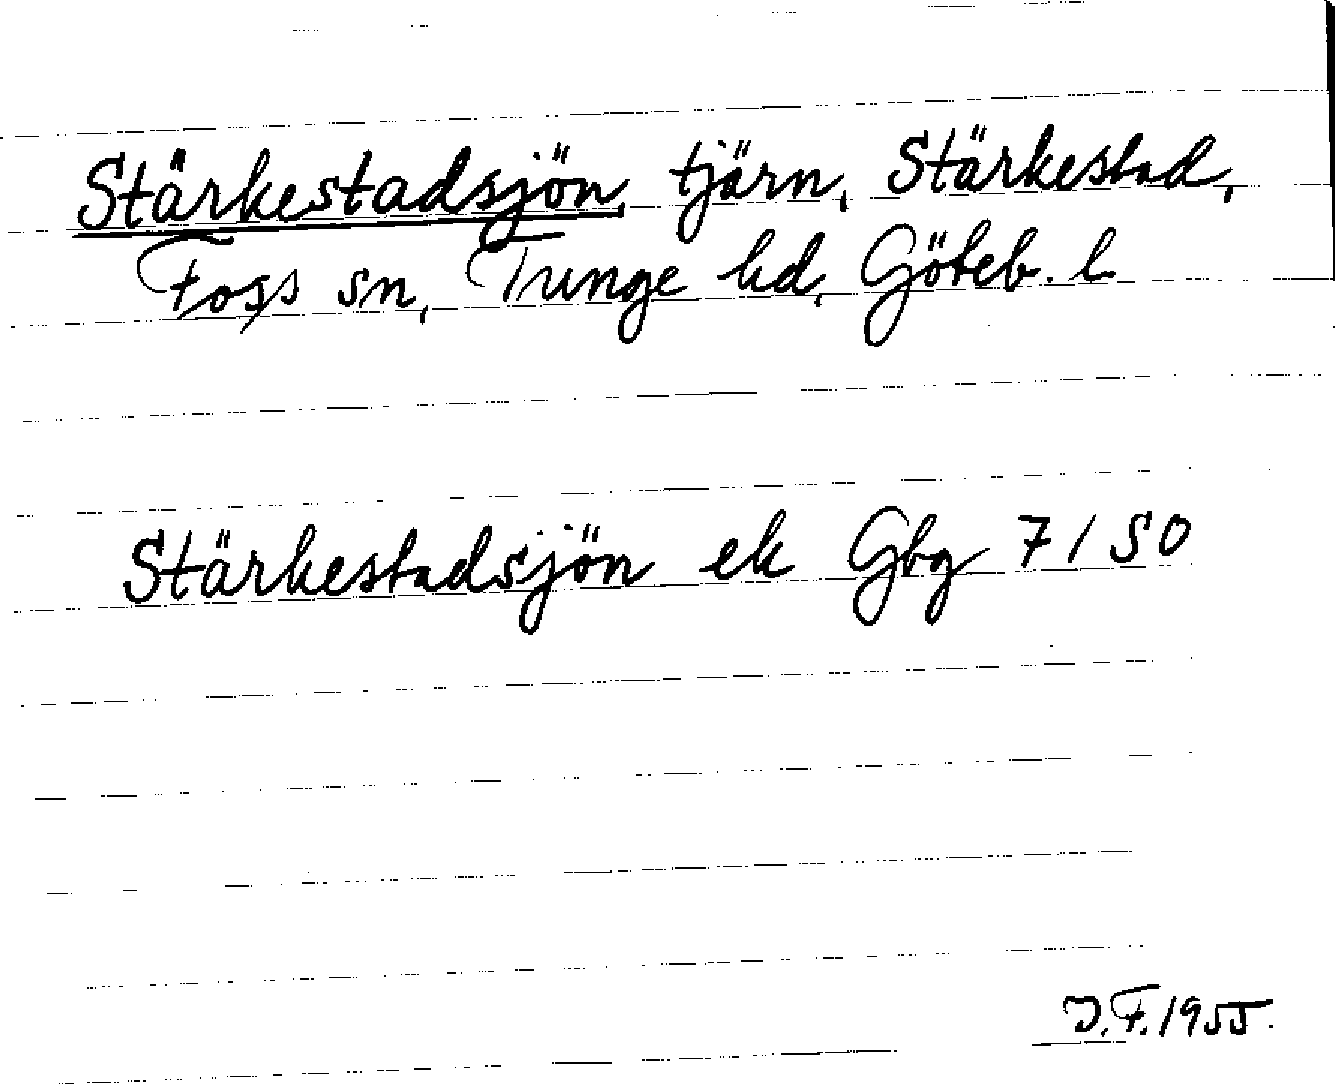 Stärkestadsjön, tjärn, Stärkestad,
Foss sn, Tunge hd, Göteb. l.
Stärkestadsjön ek Gbg 7/SO
J.F. 1955.